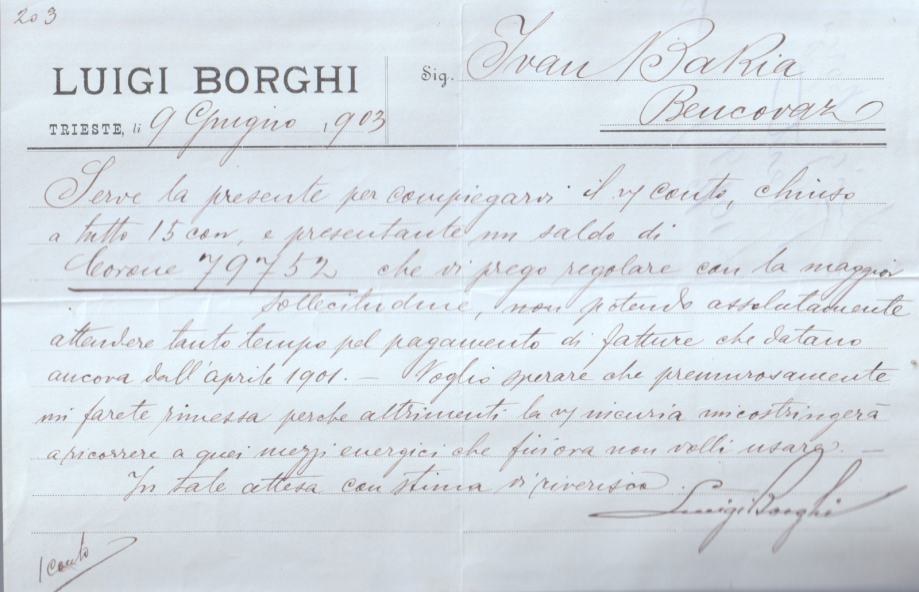 203
LUIGI BORGHI
TRIESTE, li 9 Giugno 1903
Sig. Ivan Bakia
Bencovaz
Serve la presente per compiegarvi il v/ conto, chiuso
a tutto 15 corr, e presentante un saldo di
Corone 79752 che vi prego regolare con la maggior
sollecitudine, non potendo assolutamente
attendere tanto tempo pel pagamento di fatture che datano
ancora dall'aprile 1901. — Voglio sperare che premurosamente
mi farete rimessa perche altrimenti la v/ incuria mi costringerà
a ricorrere a quei mezzi energici che finora non volli usare. —
In tale attesa con stima vi riverisco.
Luigi Borghi
1 Conto